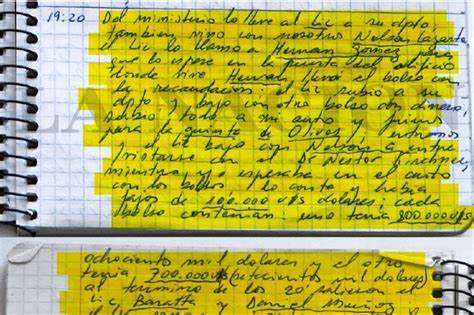 19:20 Del ministerio lo lleve al Lic a su dpto,
tambien vino con nosotros Nelson Lazarte
el Lic lo llamo a Hernan Gomez para
que lo espere en la puerta del edificio
donde vive, Hernan llevó el bolso con
la recaudacion; el Lic subio a su
dpto y bajo con otro bolso con dinero,
subio todo a mi auto y fuimos
para la quinta de Olivos, entramos
el Lic bajo con Nelson a entre
vistarse con el Dr Nestor Kirchner,
mientras yo esperaba en el auto
con los bolsos lo conte y habia
fajos de 100.000 U$S dolares; cada
bolso contenian: uno tenia 800.000 U$S
ochocientos mil dolares y el otro
tenia 700.000 U$S (setecientos mil dolares)
al termino de los 20' salieron
Lic Baratta y Daniel Muñoz